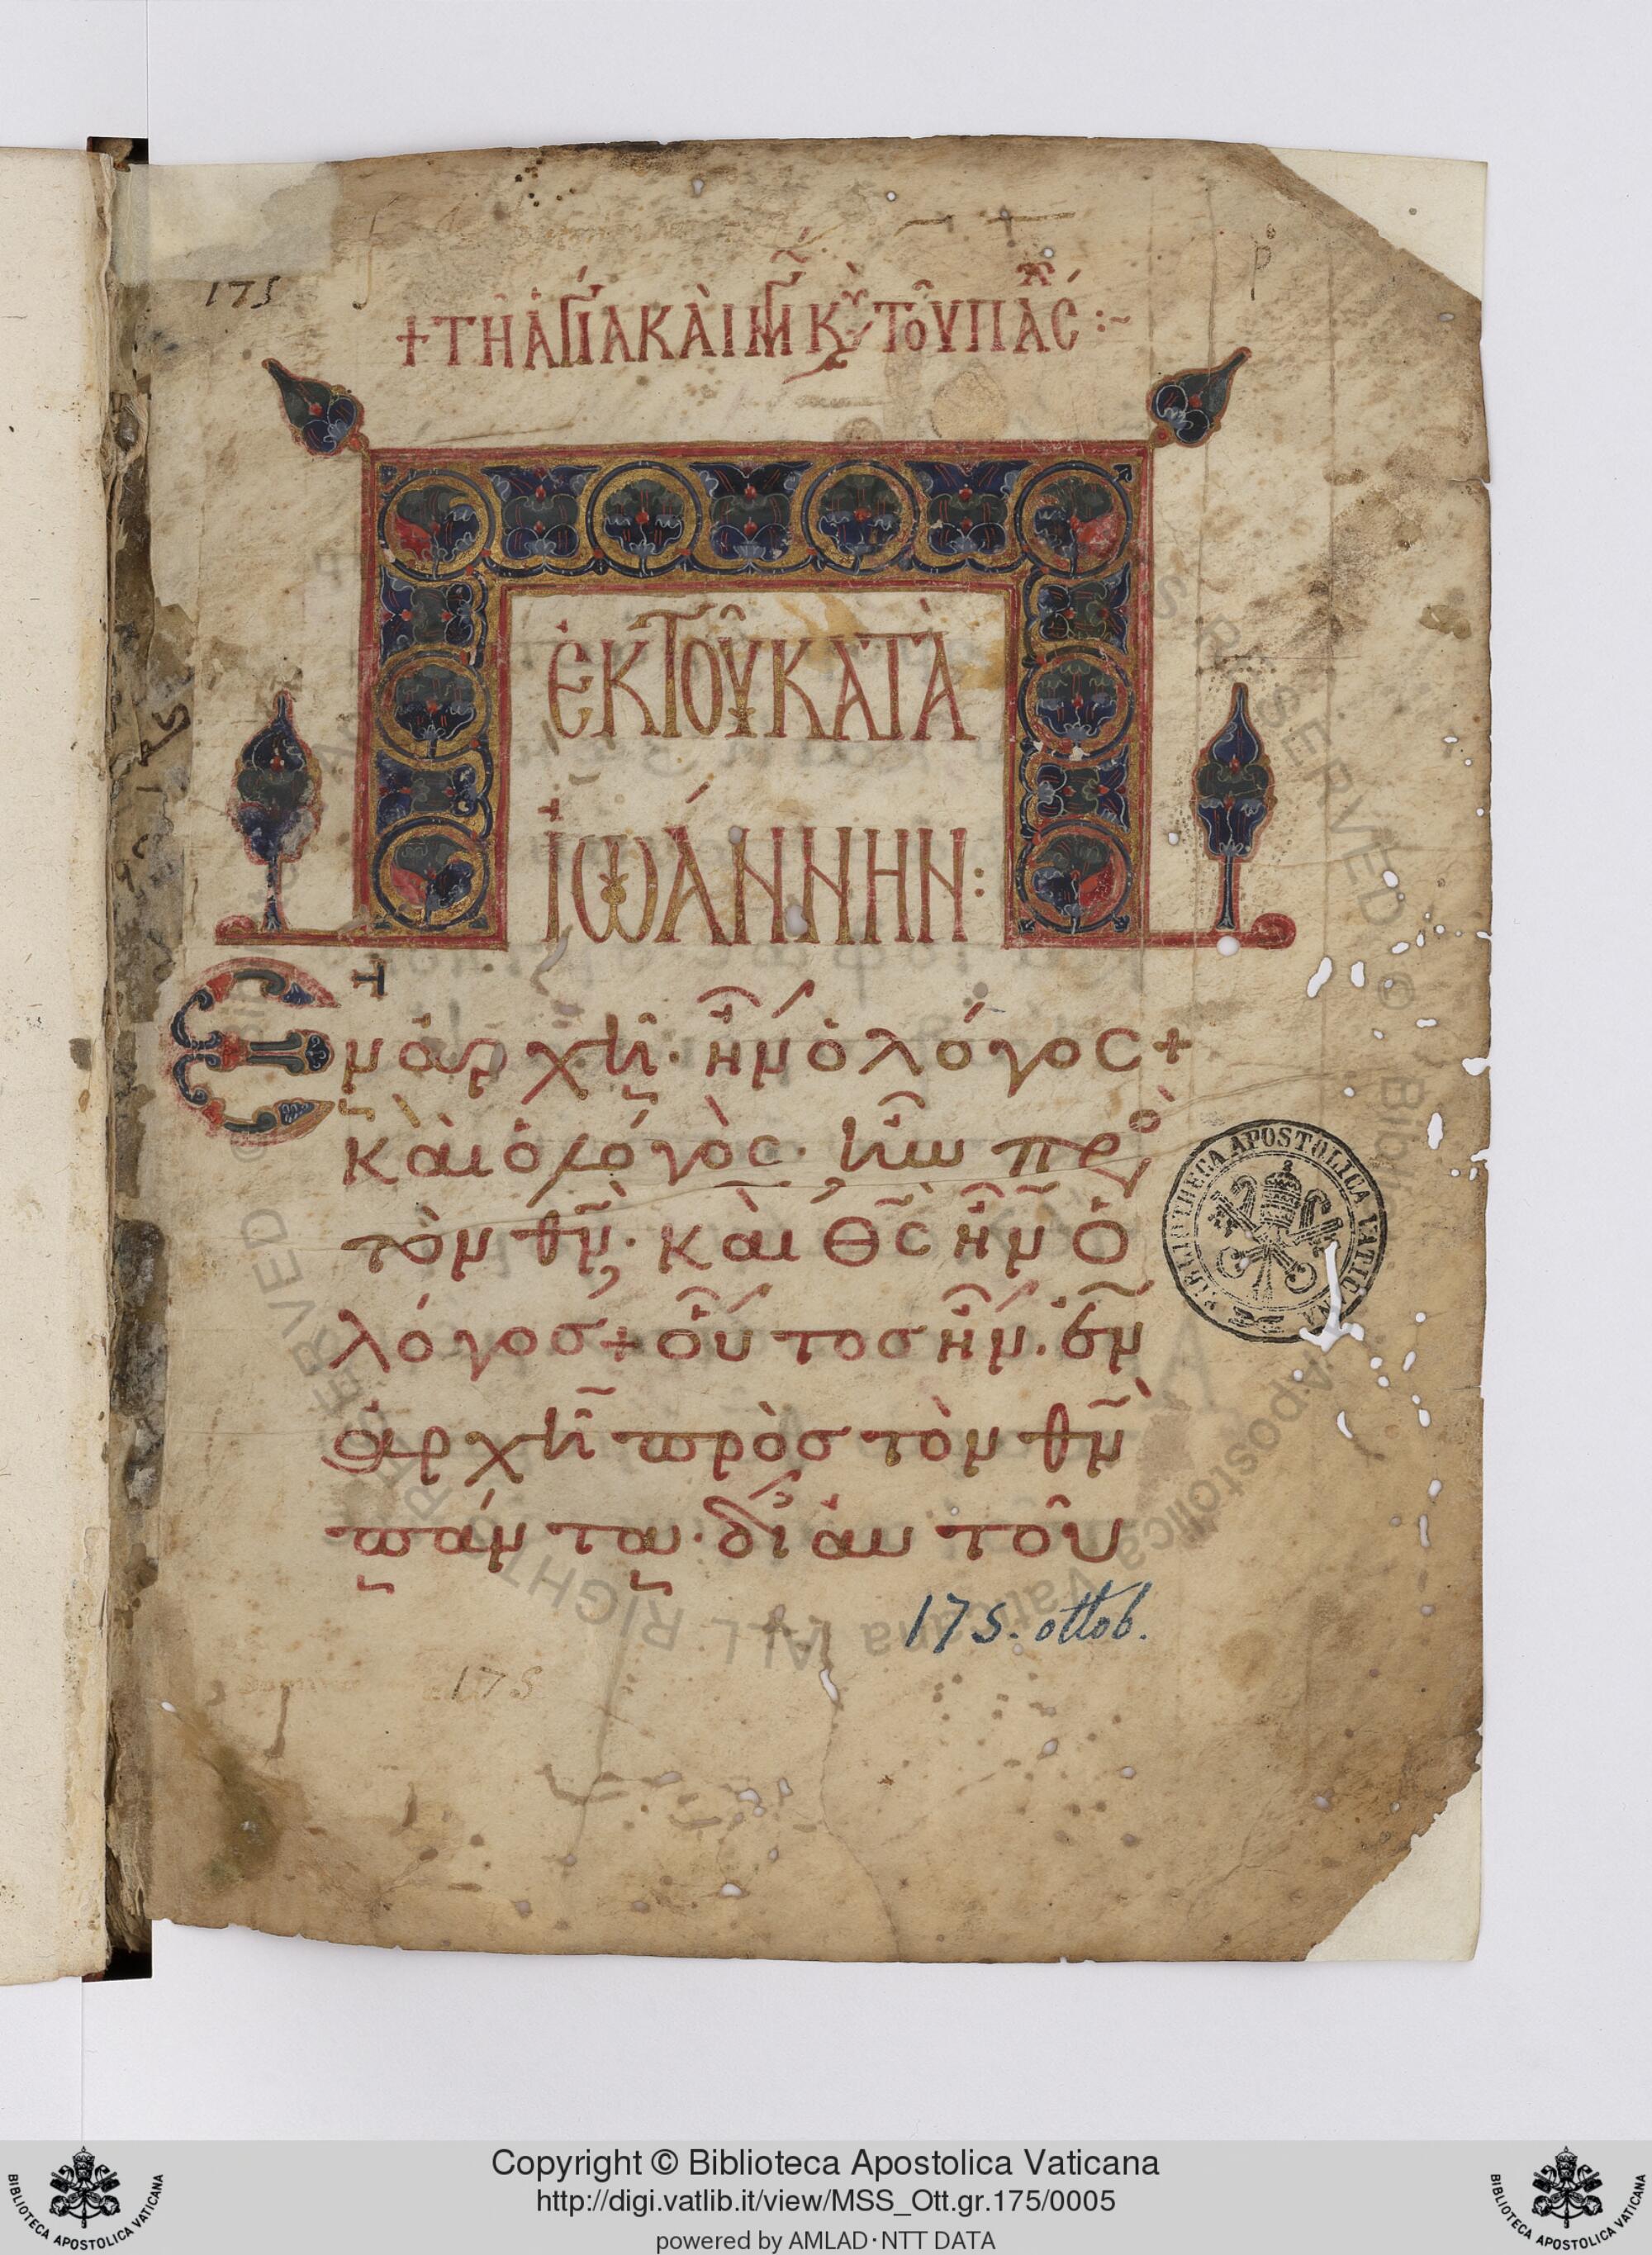 175
+ΤΗ ΑΓΙΑ ΚΑΙ Μ ΚΥ ΤΟΥ ΠΑΣ:~
ἐΚ ΤΟΥ͂ ΚΑΤᾺ
ἸΩΆΝΝΗΝ:
Ἐν ἀρχῆι· ἦν ὁ λόγος+
καὶ ὁ λόγος· ἦν πρὸ
τὸν θν̄· καὶ θ̄ς ἦν ὁ
λόγος+ οὗτος ἦν· ἐν
ἀρχῆι πρὸς τὸν θν̄
πάντα· δι' αὐτοῦ
175. ottob.
175
BIBLIOTHECA APOSTOLICA VATICANA
Copyright © Biblioteca Apostolica Vaticana
http://digi.vatlib.it/view/MSS_Ott.gr.175/0005
powered by AMLAD·NTT DATA
BIBLIOTECA APOSTOLICA VATICANA
BIBLIOTECA APOSTOLICA VATICANA